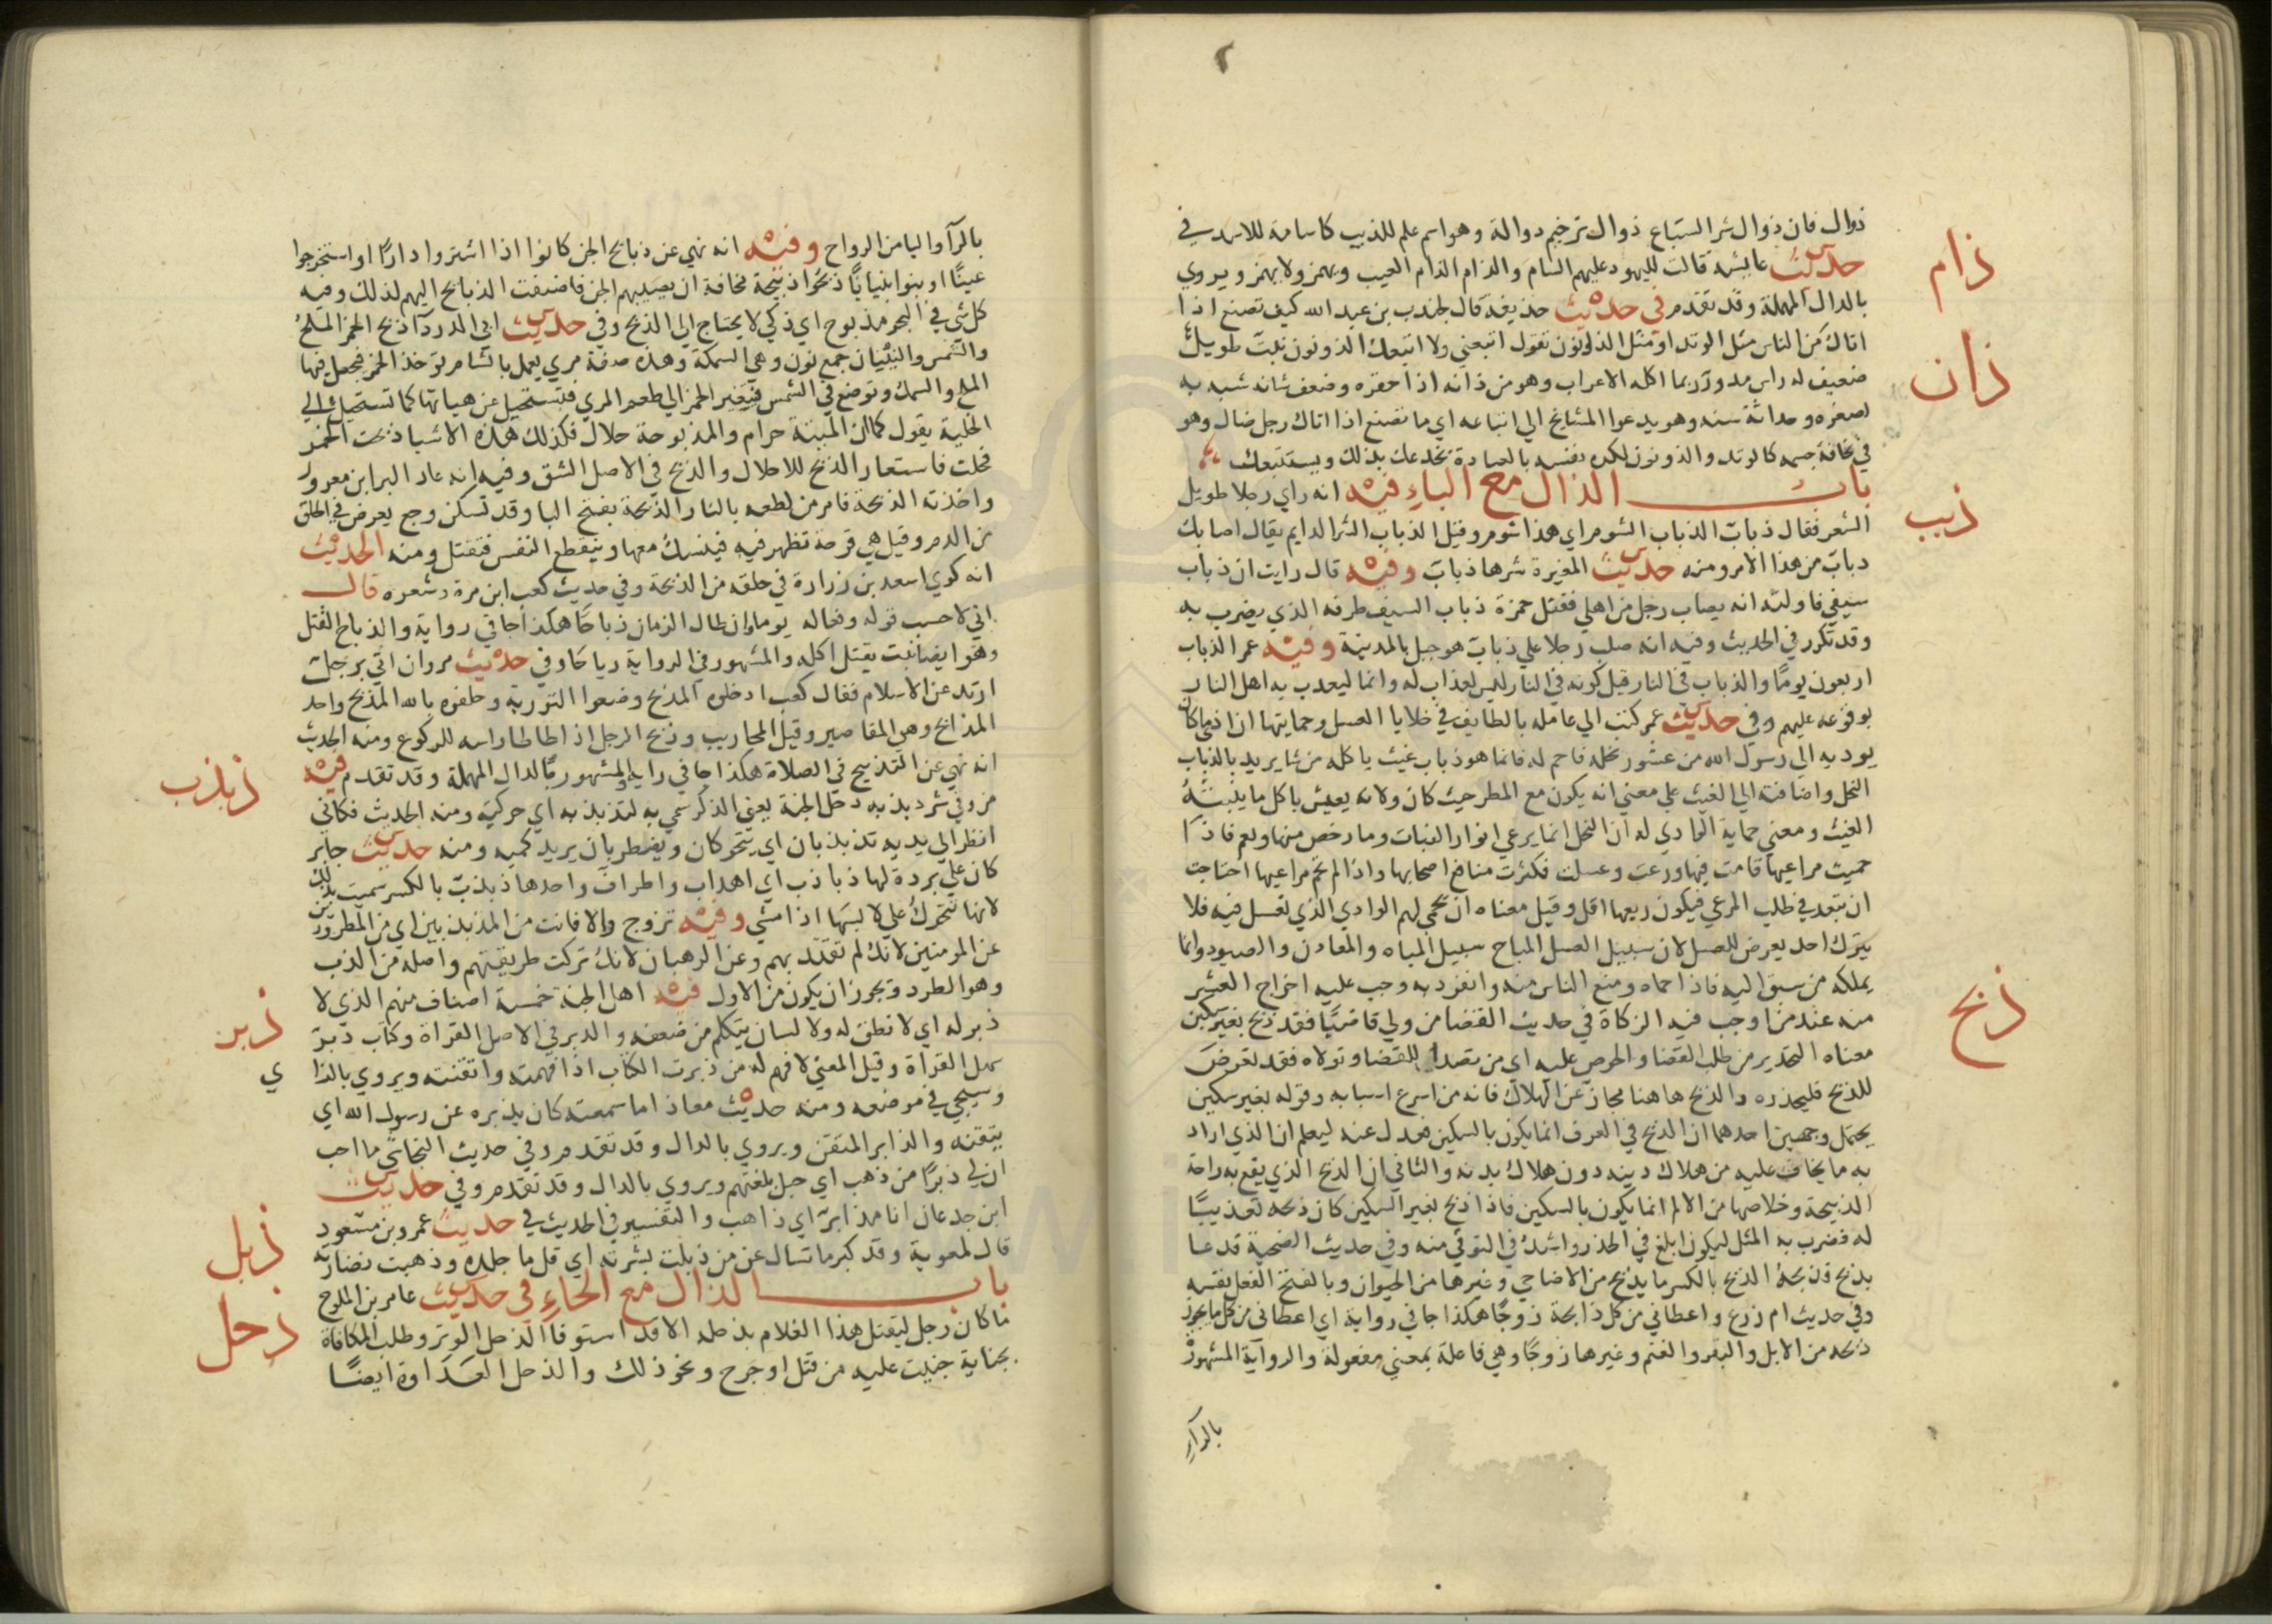 ٢
ذوال فان ذوال شر السباع ذوال ترخيم ذوالة وهو اسم علم للذيب كاسامة للاسد في
ذام
حديث عايشه قالت لليهود عليهم السام والذام الذام العيب ويهمز ولا يهمز ويروي
بالدال المهملة وقد تقدم في حديث حذيفة قال لجندب بن عبد الله كيف تصنع اذا
ذان
اتاك من الناس مثل الوتد او مثل الذونون تقول اتبعني ولا اتبعك الذونون نبت طويل
ضعيف له راس مدور ربما اكله الاعراب وهو من ذانه اذا حقره وضعف شانه شبه به
لصغره وحداثة سنه وهو يدعوا المشايخ الي اتباعه اي ما تصنع اذا اتاك رجل ضال وهو
في نحافة جسمه كالوتد والذونون لكده نفسه بالعبادة يخدعك بذلك ويستتبعك
ذبب
باب الذال مع الباء فيه انه راي رجلا طويل
الشعر فقال ذباب الذباب الشوم اي هذا شوم وقيل الذباب الشر الدايم يقال اصابك
دباب من هذا الامر ومنه حديث المغيرة شرها ذباب وفيه قال رايت ان ذباب
سيفي فاولته انه يصاب رجل من اهلي فقتل حمزة ذباب السيف طرفه الذي يضرب به
وقد تكرر في الحديث وفيه انه صلب رجلا علي ذباب هو جبل بالمدينة وفيه عمر الذباب
اربعون يوما والذباب في النار قيل كونه في النار ليس لعذاب له وانما ليعدب به اهل النار
بوقوعه عليهم وفي حديث عمر كتب الي عامله بالطايف في خلايا العسل وحمايتها ان ادي ما كان
يوديه الي رسول الله من عشور نحله فاحم له فانما هو ذباب غيث ياكله من شا يريد بالذباب
النحل واضافته الي الغيث علي معني انه يكون مع المطر حيث كان ولانه يعيش باكل ما ينبته
الغيث ومعني حماية الوادي له ان النحل انما يرعي انوار النبات وما رخص منها ونعم فاذا
حميت مراعيها قامت فيها ورعت وعسلت فكثرت منافع اصحابها واذا لم تحم مراعيها احتاجت
ان تبعد في طلب المرعي فيكون ريعها اقل وقيل معناه ان يحمي لهم الوادي الذي تعسل فيه فلا
يترك احد يعرض للعسل لان سبيل العسل المباح سبيل المياه والمعادن والصيود وانما
يملكه من سبق اليه فاذا حماه ومنع الناس منه وانفرد به وجب عليه اخراج العشر
ذبح
منه عند من اوجب فيه الزكاة في حديث القضا من ولي قاضيا فقد ذبح بغير سكين
معناه التحذير من طلب القضا والحرص عليه اي من تصدا للقضا وتولاه فقد تعرض
للذبح فليحذره والذبح ها هنا مجاز عن الهلاك فانه من اسرع اسبابه وقوله بغير سكين
يحتمل وجهين احدهما ان الذبح في العرف انما يكون بالسكين فعدل عنه ليعلم ان الذي اراد
به ما يخاف عليه من هلاك دينه دون هلاك بدنه والثاني ان الذبح الذي يقع به راحة
الذبيحة وخلاصها من الالم انما يكون بالسكين فاذا ذبح بغير السكين كان ذبحه تعذيبا
له فضرب به المثل ليكون ابلغ في الحذر واشد في التوقي منه وفي حديث الضحية قد عا
بذبح فذبحه الذبح بالكسر ما يذبح من الاضاحي وغيرها من الحيوان وبالفتح الفعل نفسه
وفي حديث ام زرع واعطاني من كل ذابحة زوجا هكذا جا في رواية اي اعطاني من كل ما يجوز
ذبحه من الابل والبقر والغنم وغيرها زوجا وهي فاعلة بمعني مفعولة والرواية المشهور
بالراء
بالرآ واليا من الرواح وفيه انه نهي عن ذبايح الجن كانوا اذا اشتروا دارا او استخرجوا
عينا او بنوا بنيانا ذبحوا ذبيحة مخافة ان يصيبهم الجن فاضيفت الذبايح اليهم لذلك وفيه
كل شي في البحر مذبوح اي ذكي لا يحتاج الي الذبح وفي حديث ابي الدردآ ذبح الخمر الملح
والشمس والنينان جمع نون وهي السمكة وهذه صفة مري يعمل بالشام توخذ الخمر فيجعل فيها
الملح والسمك وتوضع في الشمس فيتغير الخمر الي طعم المري فتستحيل عن هياتها كما تستحيل الي
الخلية يقول كما ان الميتة حرام والمذبوحة حلال فكذلك هذه الاشيا ذبحت الخمر
فحلت فاستعار الذبح للاحلال والذبح في الاصل الشق وفيه انه عاد البرا بن معرور
واخذته الذبحة فامر من لطعه بالنار الذبحة بفتح البا وقد تسكن وجع يعرض في الحلق
من الدم وقيل هي قرحة تظهر فيه فينسد معها وينقطع النفس فتقتل ومنه الحديث
انه كوي اسعد بن زرارة في حلقه من الذبحة وفي حديث كعب ابن مرة وشعره قال
اني لاحسب قوله وفعاله يوما وان طال الزمان ذباحا هكذا جا في رواية والذباح القتل
وهو ايضا نبت يقتل اكله والمشهور في الرواية رياحا وفي حديث مروان اتي برجل
ارتد عن الاسلام فقال كعب ادخلوه المذبح وضعوا التورية وحلفوه بالله المذبح واحد
المذابح وهي المقاصير وقيل المحاريب وذبح الرجل اذ اطاطا راسه للركوع ومنه الحديث
انه نهي عن التذبيح في الصلاة هكذا جا في رواية والمشهور بالدال المهملة وقد تقدم فيه
ذبذب
من وقي شر ذبذبه دخل الجنة يعني الذكر سمي به لتذبذبه اي حركته ومنه الحديث فكاني
انظر الي يديه تذبذبان اي يتحركان ويضطربان يريد كميه ومنه حديث جابر
كان علي بردة لها ذباذب اي اهداب واطراف واحدها ذبذب بالكسر سميت بذلك
لانها تتحرك علي لابسها اذا مشي وفيه تزوج والا فانت من المذبذبين اي من المطرودين
عن المومنين لانك لم تقتد بهم وعن الرهبان لانك تركت طريقتهم واصله من الذب
وهو الطرد ويجوز ان يكون من الاول فيه اهل الجنة خمسة اصناف منهم الذي لا
ذبر
ذبر له اي لا نطق له ولا لسان يتكلم من ضعفه والذبر في الاصل القراة وكتاب ذبر
سهل القراة وقيل المعني لا فهم له من ذبرت الكتاب اذا فهمته واتقنته ويروي بالزا
ي
وسيجي في موضعه ومنه حديث معاذ اما سمعته كان يذبره عن رسول الله اي
يتقنه والذابر المتقن ويروي بالدال وقد تقدم وفي حديث النجاشي ما احب
ان لي ذبرا من ذهب اي جبل بلغتهم ويروي بالدال وقد تقدم وفي حديث
ابن جدعان انا مذابر اي ذاهب والتفسير في الحديث في حديث عمرو بن مسعود
ذبل
قال لمعوية وقد كبر ما تسال عن من ذبلت بشرته اي قل ما جلده وذهبت نضارته
باب الذال مع الحاء في حديث عامر بن الملوح
ذحل
ما كان رجل ليقتل هذا الغلام بذحله الا قد استوفا الذحل الوتر وطلب المكافاة
بجناية جنيت عليه من قتل او جرح ونحو ذلك والذحل العداوة ايضا